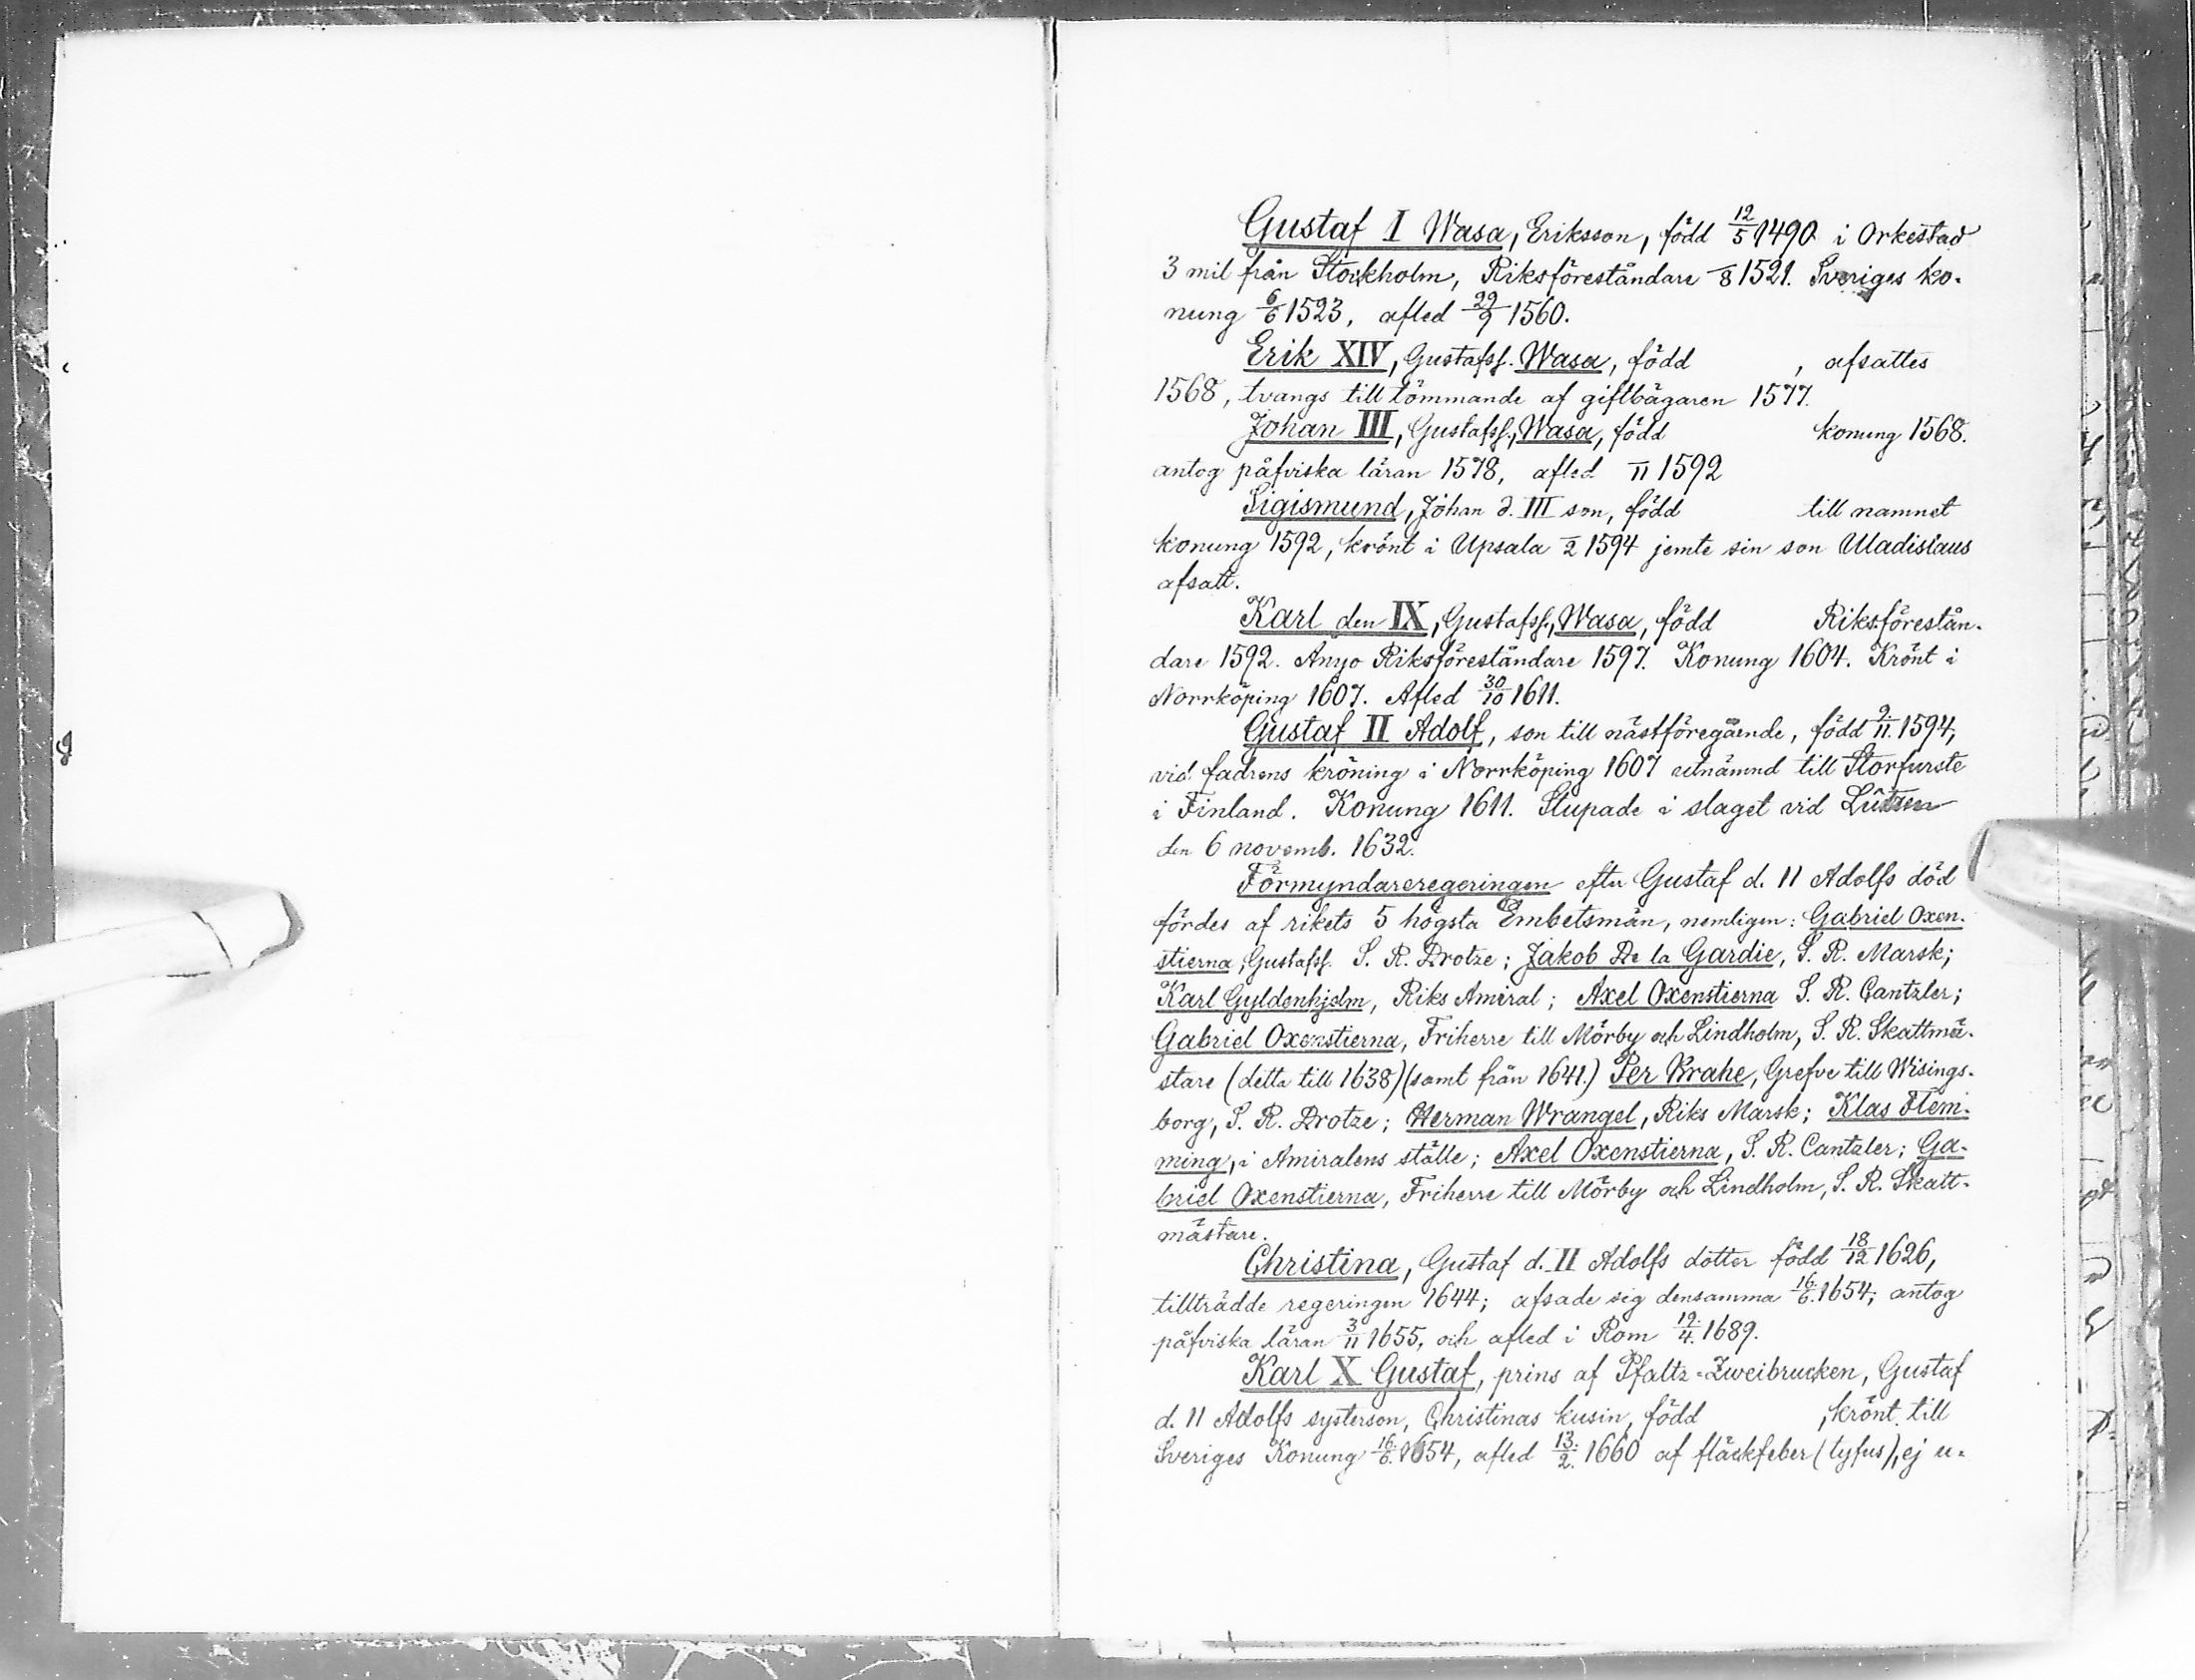 Gustaf I Wasa, Eriksson, född 12/5 1490 i Orkestad
3 mil från Stockholm, Riksföreståndare –/8 1521. Sveriges ko-
nung 6/6 1523, afled 29/9 1560.
Erik XIV, Gustafss. Wasa, född , afsattes
1568, tvangs till tömmande af giftbägaren 1577.
Johan III, Gustafss., Wasa, född konung 1568.
antog påfviska läran 1578, afled –/11 1592
Sigismund, Johan d. III son, född till namnet
konung 1592, krönt i Upsala –/2 1594 jemte sin son Uladislaus
afsatt.
Karl den IX, Gustafss., Wasa, född Riksförestån-
dare 1592. Anyo Riksföreståndare 1597. Konung 1604. Krönt i
Norrköping 1607. Afled 30/10 1611.
Gustaf II Adolf, son till nästföregående, född 9/11. 1594,
vid fadrens kröning i Norrköping 1607 utnämnd till Storfurste
i Finland. Konung 1611. Stupade i slaget vid Lützen
den 6 novemb. 1632.
Förmyndareregeringen efter Gustaf d. II Adolfs död
fördes af rikets 5 högsta Embetsmän, nemligen: Gabriel Oxen-
stierna, Gustafss. S. R. Drotze; Jakob De la Gardie, S. R. Marsk;
Karl Gyldenhjelm, Riks Amiral; Axel Oxenstierna S. R. Cantzler;
Gabriel Oxenstierna, Friherre till Mörby och Lindholm, S. R. Skattmä-
stare (detta till 1638) (samt från 1641.) Per Brahe, Grefve till Wisings-
borg, S. R. Drotze; Herman Wrangel, Riks Marsk; Klas Flem-
ming, i Amiralens ställe; Axel Oxenstierna, S. R. Cantzler; Ga-
briel Oxenstierna, Friherre till Mörby och Lindholm, S. R. Skatt-
mästare.
Christina, Gustaf d. II Adolfs dotter född 18/12 1626,
tillträdde regeringen 1644; afsade sig densamma 16./6. 1654; antog
påfviska läran 3/11 1655, och afled i Rom 19./4. 1689.
Karl X Gustaf, prins af Pfaltz-Zweibrucken, Gustaf
d. II Adolfs systerson, Christinas kusin, född , krönt till
Sveriges Konung 16./6. 1654, afled 13./2. 1660 af fläckfeber (tyfus), ej u-